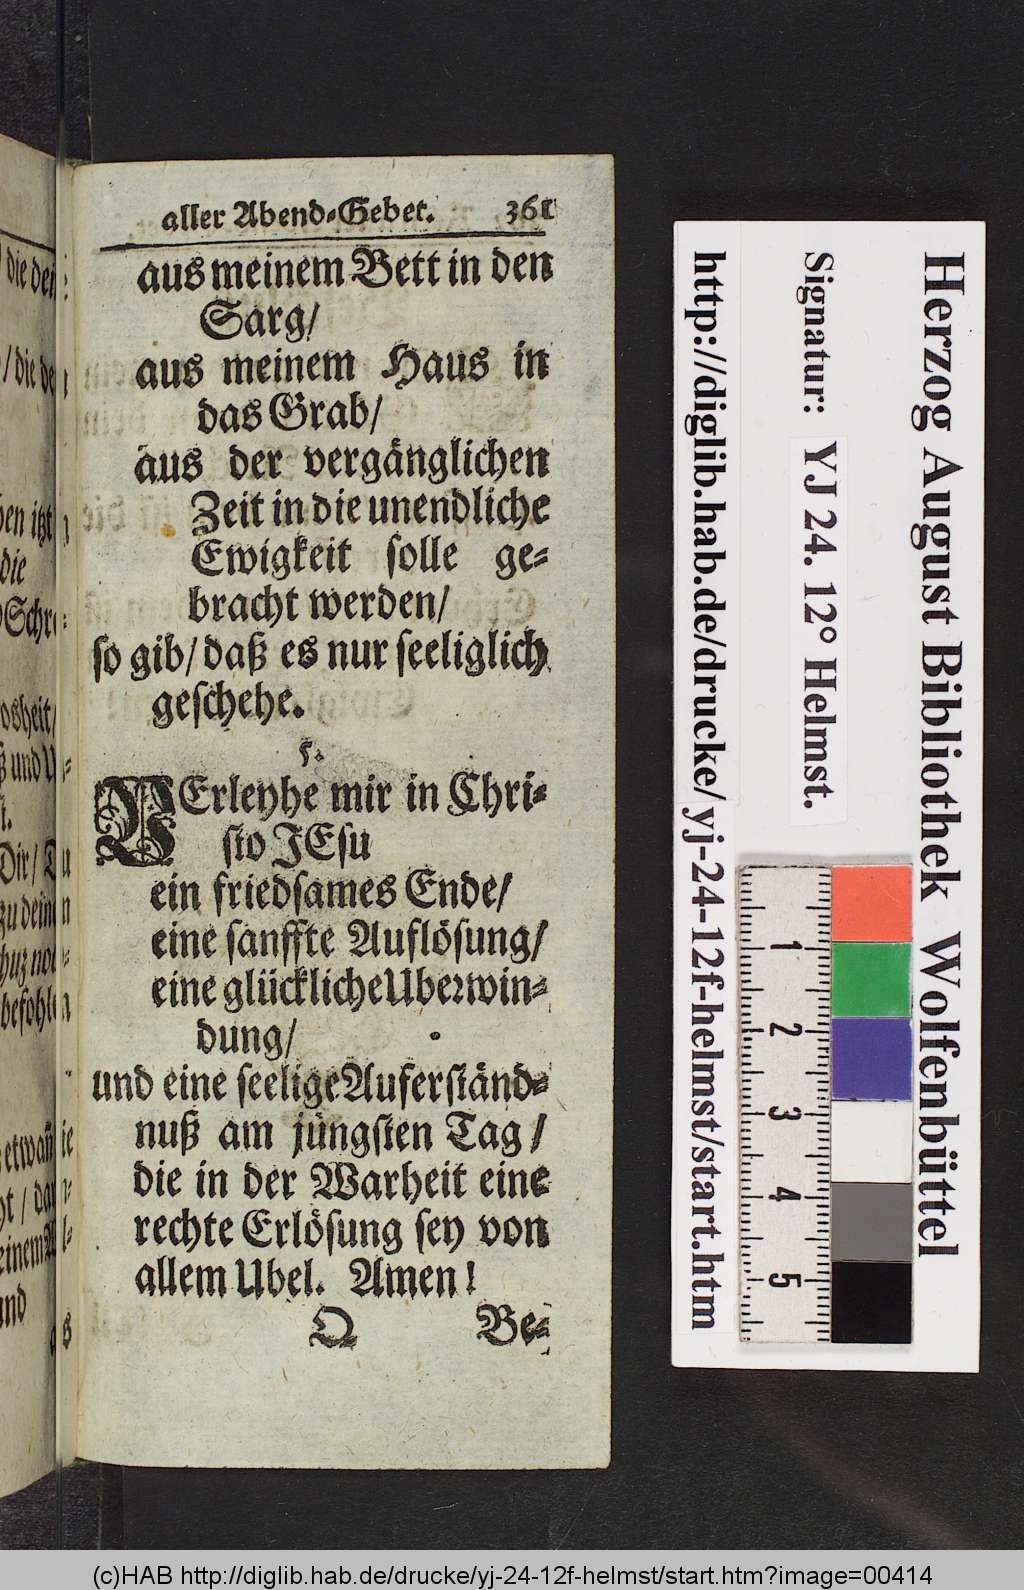 aller Abend-Gebet. 361
aus meinem Bett in den
Sarg/
aus meinem Haus in
das Grab/
aus der vergänglichen
Zeit in die unendliche
Ewigkeit solle ge-
bracht werden/
so gib/ daß es nur seeliglich
geschehe.
5.
VErleyhe mir in Chri-
sto JEsu
ein friedsames Ende/
eine sanffte Auflösung/
eine glückliche Uberwin-
dung/
und eine seelige Auferständ-
nuß am jüngsten Tag/
die in der Warheit eine
rechte Erlösung sey von
allem Ubel. Amen!
Q Be-
Herzog August Bibliothek Wolfenbüttel
Signatur: YJ 24. 12° Helmst.
http://diglib.hab.de/drucke/yj-24-12f-helmst/start.htm
1
2
3
4
5
(c)HAB http://diglib.hab.de/drucke/yj-24-12f-helmst/start.htm?image=00414